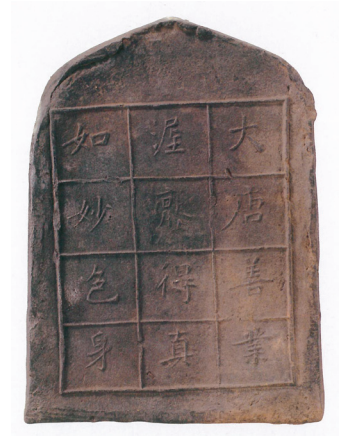 大唐善業
埿壓得真
如妙色身